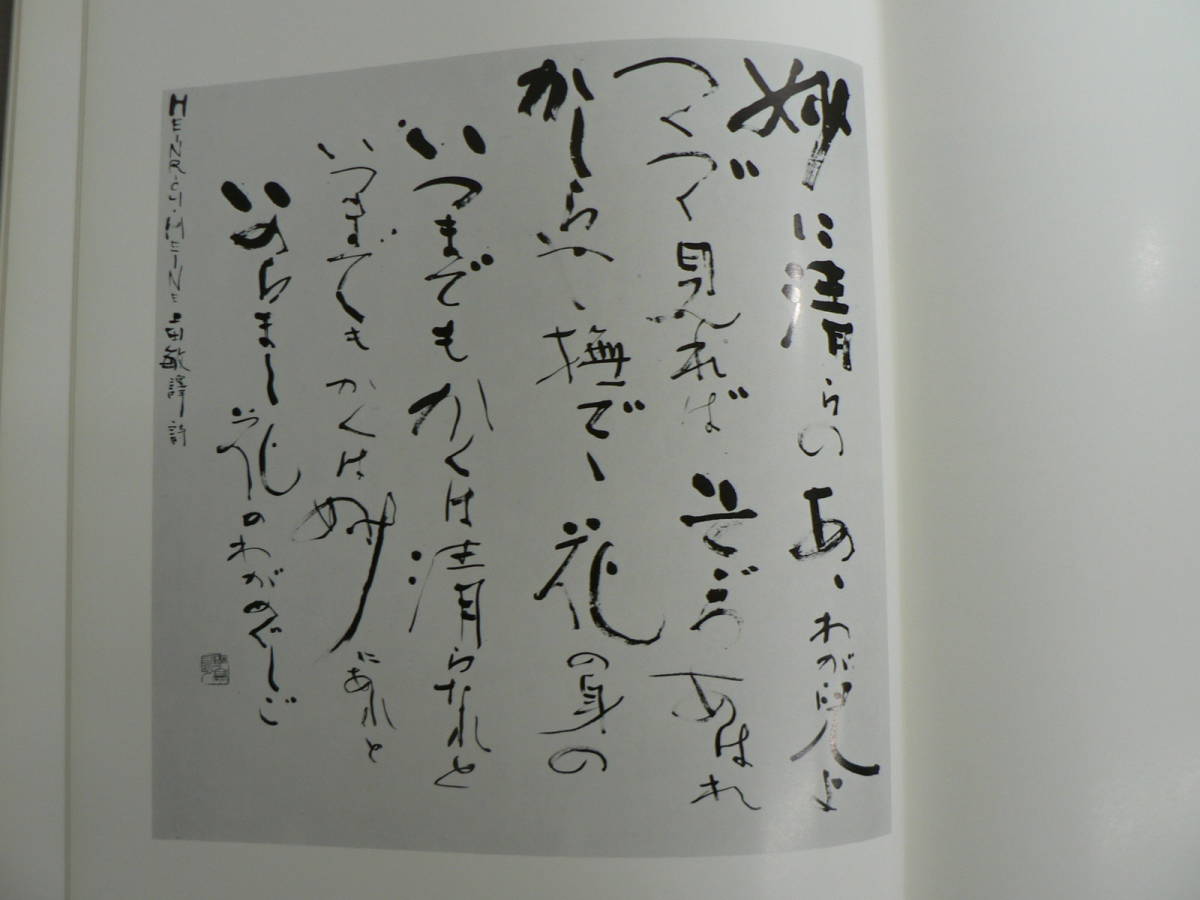 妙に清らのあゝわが児よ
つくづく見ればそゞろあはれ
かしらや撫でゝ花の身の
いつまでもかくは清らなれと
いつまでもかくは妙にあれと
いのらまし花のわがめぐしご
HEINRICH・HEINE 上田敏譯詩